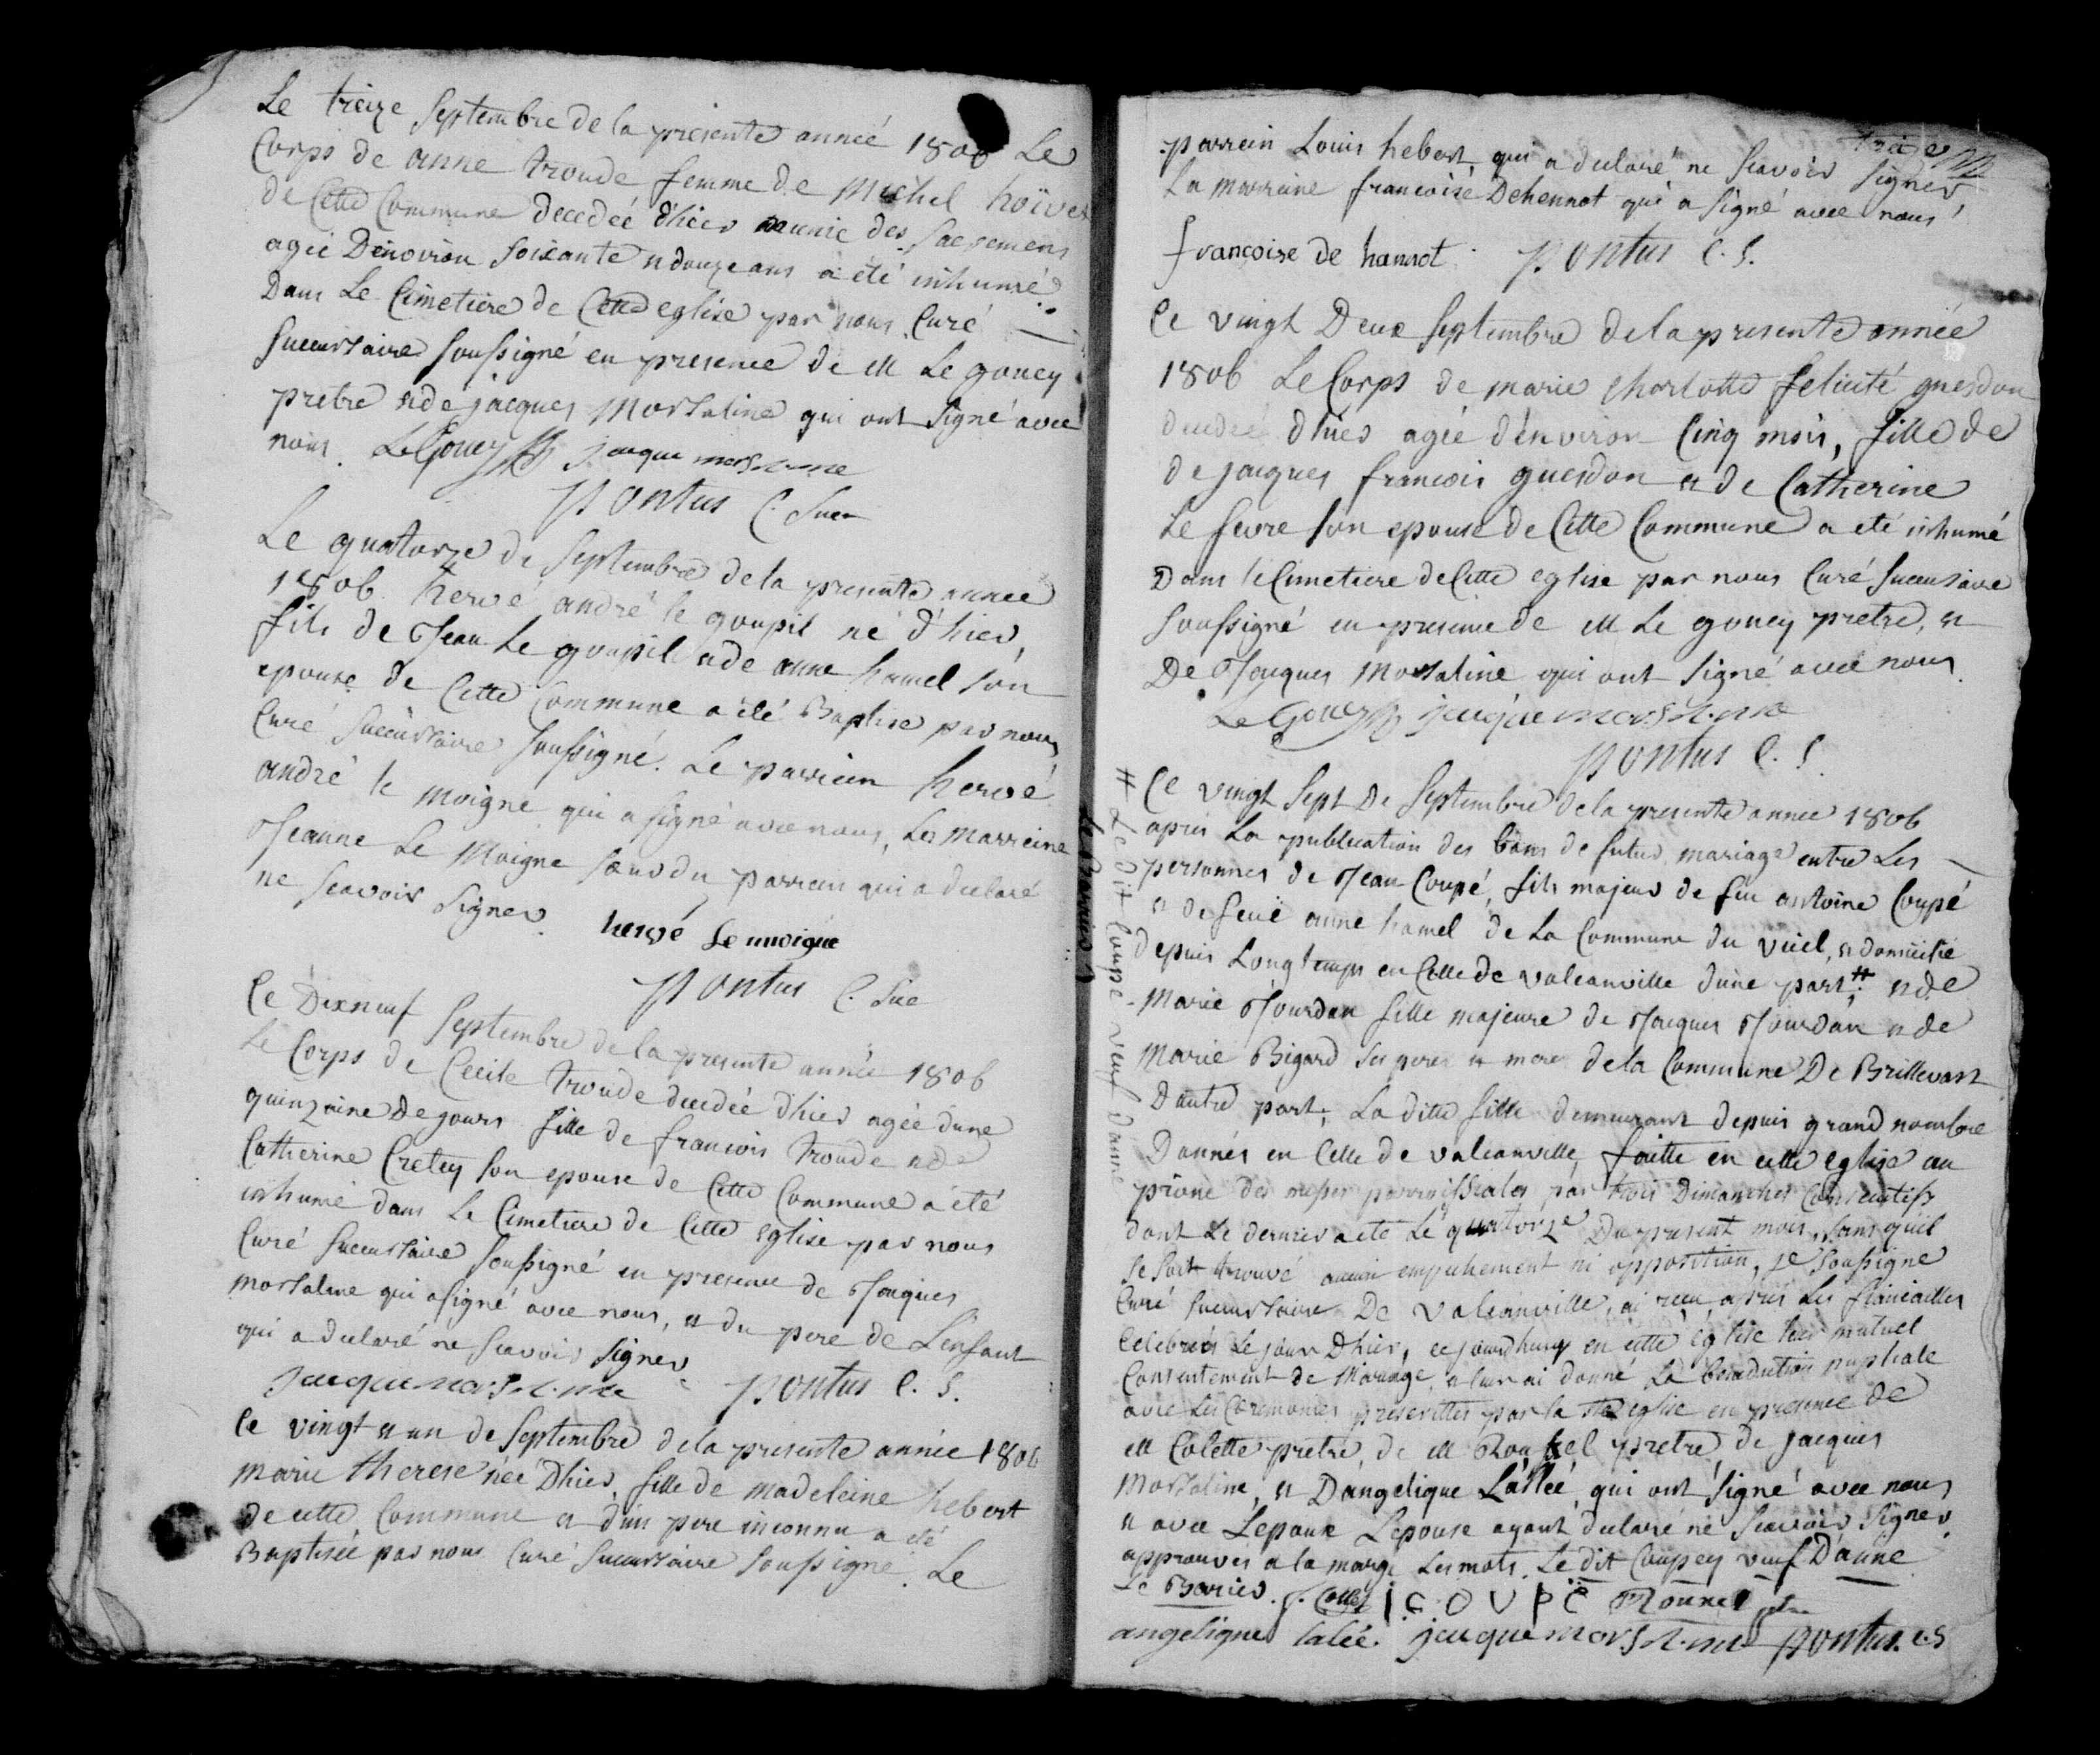 Le treize Septembre de la presente anneé 1806 Le
Corps de anne troude femme de Michel hoïvet
de Cette Commune decedeé d'hier munie des sacremens
ageé Denviron soixante et douze ans a été inhumé
Dans Le Cimetiere de Cette eglise par nous Curé
succursaire soussigné en presence de M Le goucy
pretre et de jacques Morsaline qui ont signé avec
nous. LeGoucy jaque morsaline
Pontus C. Succ
Le quatorze de Septembre de la presente année
1806 hervé andré le goupil né d'hier,
fils de Jean Le goupil et de anne hamel son
epouse de Cette Commune a été Baptise par nous
Curé succursaire soussigné. Le parrein hervé
andré le moigne qui a signé avec nous, La Marreine
Jeanne Le Moigne soeur du parrein qui a declaré
ne scavoir signer. hervé Le moigne
Pontus C. Suc
Ce Dixneuf Septembre de la presente année 1806
Le Corps de Cecile troude decedeé d'hier ageé d'une
quinzaine De jours fille de francois troude et de
Catherine Cretey son epouse de Cette Commune a été
inhumé dans Le Cimetiere de Cette eglise par nous
Curé succursaire soussigné en presence de Jacques
morsaline qui a signé avec nous, et du pere de L'enfant
qui a declaré ne scavoir signer
jacque morsaline Pontus C. S.
Ce vingt et un de Septembre de la presente année 1806
marie therese neé D'hier, fille de madeleine hebert
de cette Commune et d'un pere inconnu a été
Baptiseé par nous Curé succursaire soussigné. Le
parrein Louis hebert qui a declaré ne scavoir signer
La marreine francoise Dehennot qui a signé avec nous
francoise de hannot. Pontus C. S.
Ce vingt Deux Septembre de la presente année
1806 Le Corps de marie charlotte felicité guesdon
decedeé d'hier ageé d'environ Cinq mois, fille de
de jacques francois guesdon et de Catherine
Le fevre son epouse de Cette Commune a eté inhumé
Dans le Cimetiere de Cette eglise par nous Curé succursaire
soussigné en presence de M Le goucy pretre, et
De Jacques Morsaline qui ont signé avec nous
Le Goucy jacque morsaline
Pontus C. S.
Ce vingt Sept De Septembre de la presente année 1806
après La publication des bans de futur mariage entre Les
personnes de Jean Coupé, fils majeur de feu antoine Coupé
et de feuë anne hamel de La Commune du vicel, et domicilié
depuis Longtemps en Celle de valcanville d'une part, # et de
Marie Jourdan fille majeure de Jacques Jourdan et de
Marie Bigard ses pere et mere de la Commune De Brillevast
D'autre part; La ditte fille demeurant depuis grand nombre
D'années en Celle de valcanville, faitte en cette eglise au
prône des messes parroissiales par trois Dimanches Consecutifs
dont Le dernier a eté Le quatorze Du present mois, sans qu'il
se soit trouvé aucun empechement ni opposition, je soussigné
Curé succursaire De valcanville, ai recu, après Les fiancailles
Celebreés Le jour D'hier, ce jourd'huy en cette eglise leur mutuel
Consentement de Mariage, et leur ai donné La benediction nuptiale
avec Les Ceremonies prescrittes par la ste eglise en presence de
M Colette pretre, de M Rouxel pretre, de jacques
Morsaline, et D'angelique Lalleé, qui ont signé avec nous
et avec L'epoux L'epouse ayant declaré ne scavoir signer
approuvés a la marge Les mots, Le dit Coupey veuf D'anne
Le Barrier. J. Colette I COUPÉ Rouxel ptre
angelique laleé. jacque morsaline Pontus. C. S
# Le dit Coupé veuf D'anne
Le Barrier